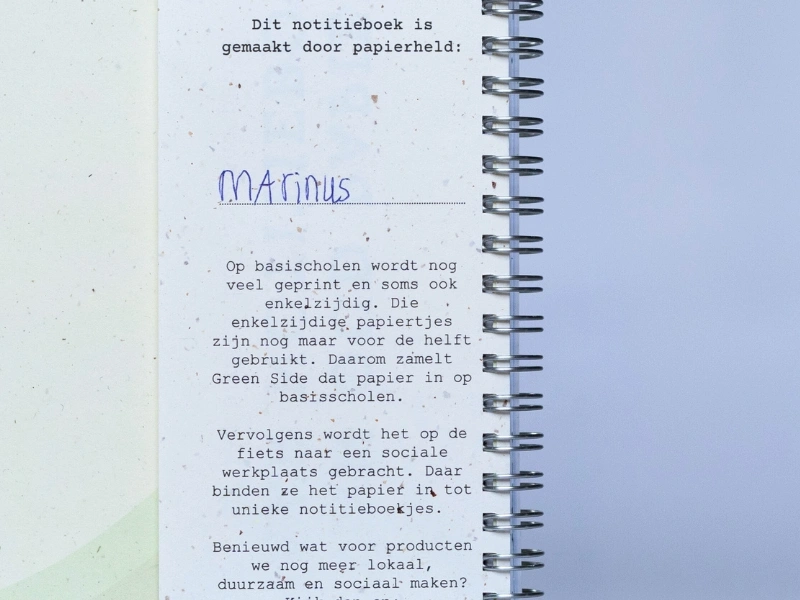 Dit notitieboek is
gemaakt door papierheld:
MArinus
Op basischolen wordt nog
veel geprint en soms ook
enkelzijdig. Die
enkelzijdige papiertjes
zijn nog maar voor de helft
gebruikt. Daarom zamelt
Green Side dat papier in op
basisscholen.
Vervolgens wordt het op de
fiets naar een sociale
werkplaats gebracht. Daar
binden ze het papier in tot
unieke notitieboekjes.
Benieuwd wat voor producten
we nog meer lokaal,
duurzaam en sociaal maken?